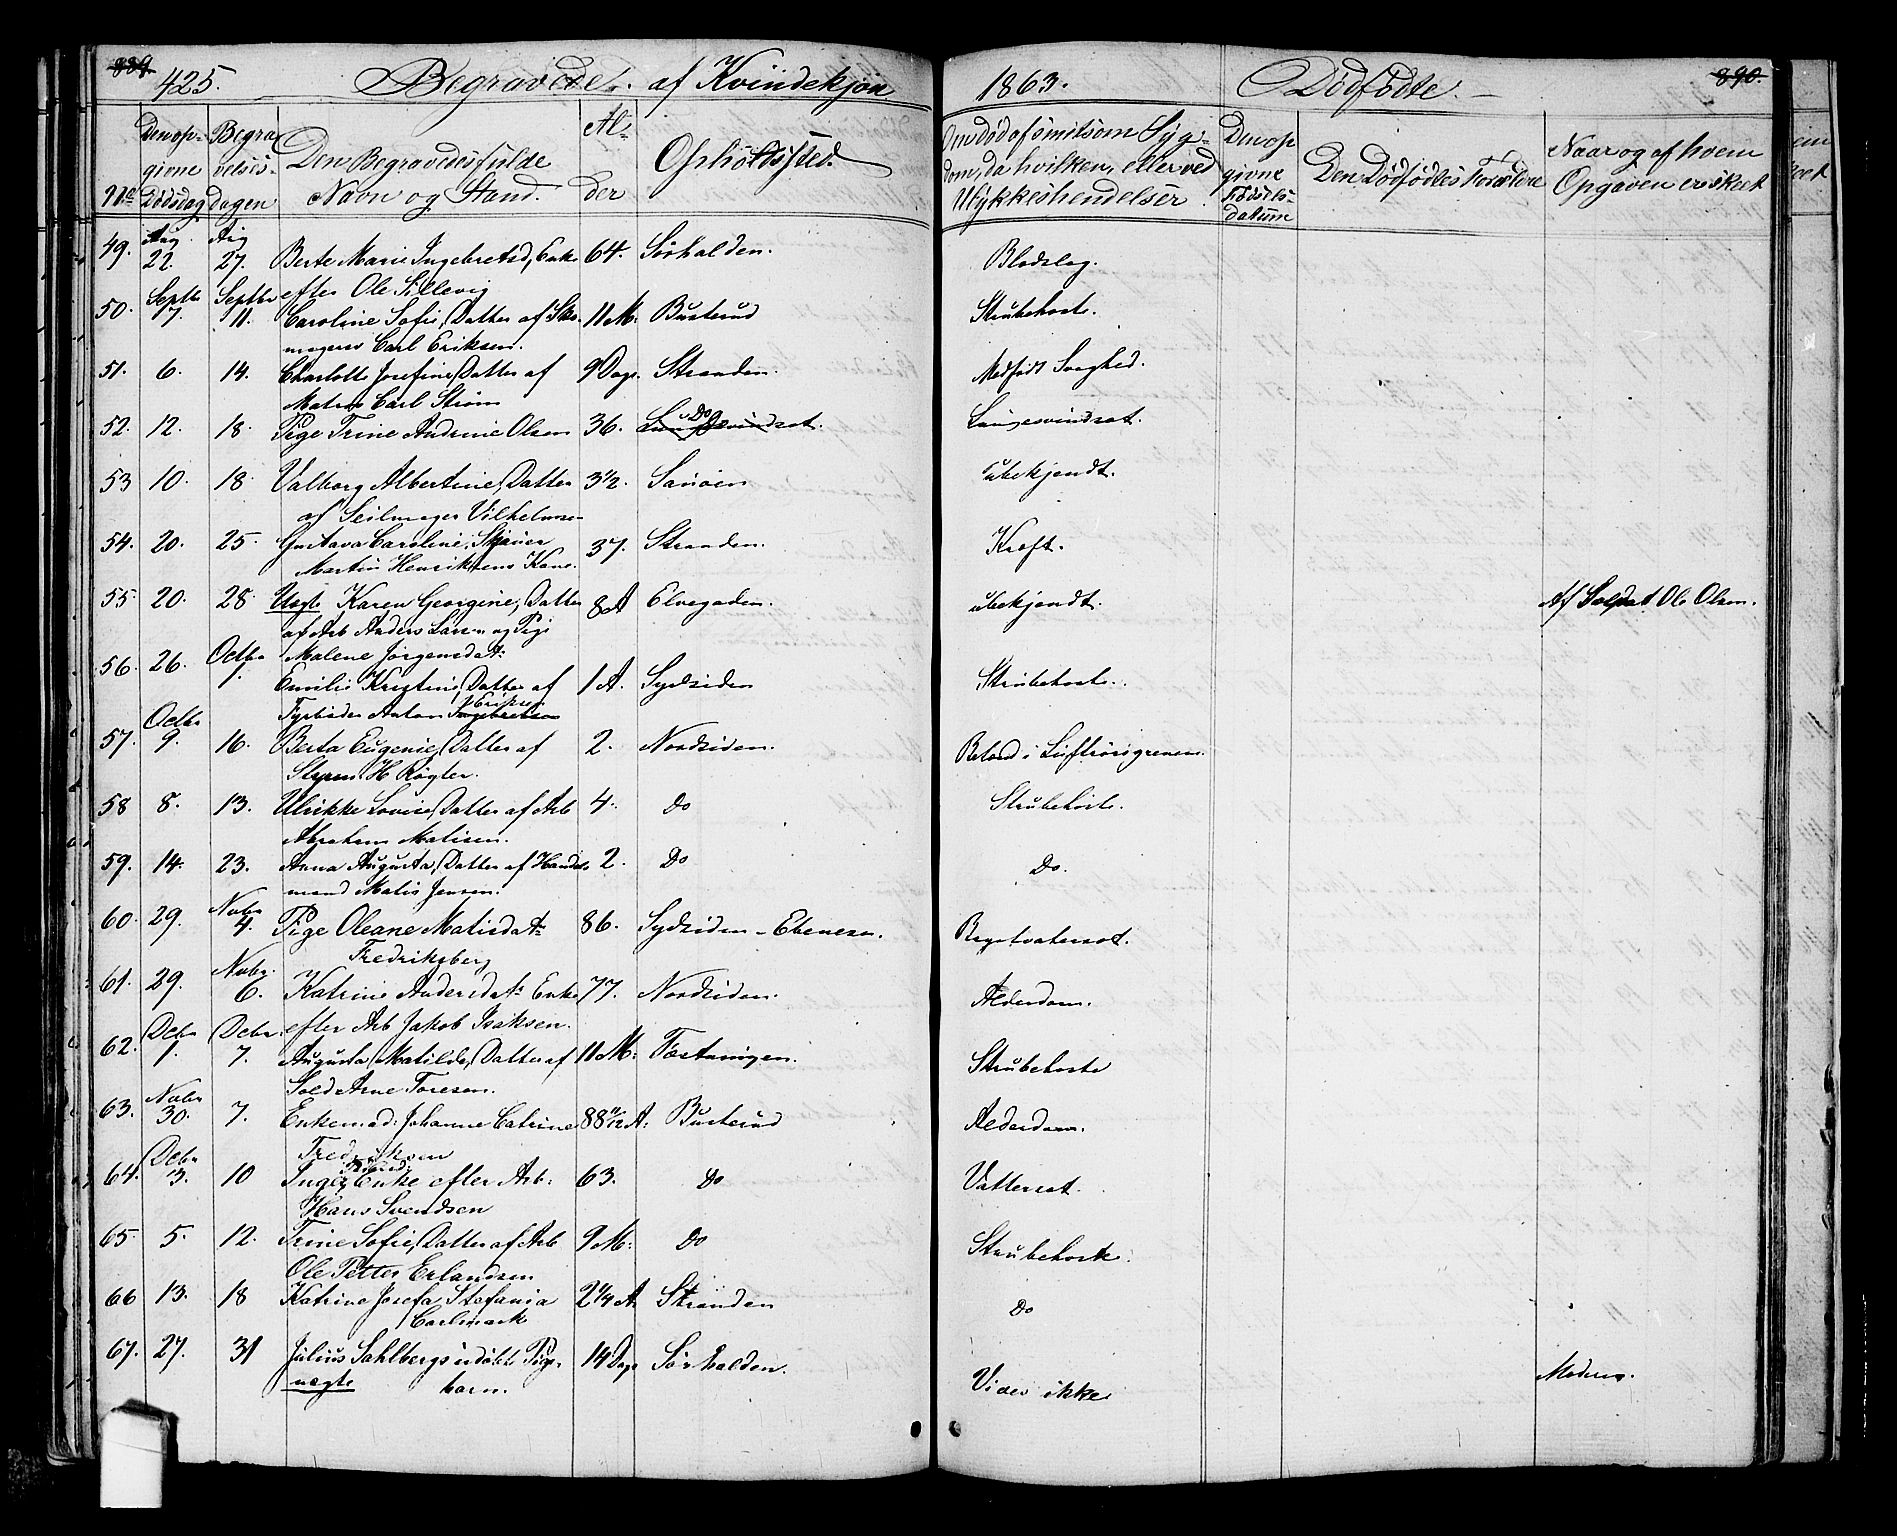 889.
425. Begravede af Kvindekjøn
1863. Dødfødte.
890.
No Den opgivne Dødsdag Begravelsesdagen Den Begravedes fulde Navn og Stand. Alder Opholdssted.
Om død af smitsom Sygdom, da hvilken, eller ved Ulykkeshendelser Den opgivne Fødselsdatum Den Dødfødtes Forældre Naar og af hvem Opgaven er skeet
49. Aug 22. Aug 27. Berte Marie Ingebretsd, Enke 64. Sørhalden. Blodslag.
efter Ole Sillevig
50. Septbr 7. Septbr 11. Caroline Sofie, Datter af Skomager 11 M. Busterud Strubehoste.
Carl Eriksen.
51. 6. 14. Charlotte Josefine, Datter af 9 Dage. Stranden. Medfødt Svaghed.
Matros Carl Strøm
52. 12. 18. Pige Trine Andrine Olsen 36. Do Lungesvindsot.
53 10. 18. Valborg Albertine, Datter 3½. Sauøen ubekjendt.
af Seilmager Vilhelmsen
54. 20. 25. Gustava Caroline, Skauer 37. Stranden. Kræft.
Martin Henriksens Kone.
55. 20. 28. Uægte Karen Georgine, Datter 8 A Elvegaden. ubekjendt. Af Soldat Ole Olsen.
af Arb Anders Larsen og Pige
Malene Jørgensdat:
56. 26. Octbr 1. Emilie Kristine, Datter af 1 A. Sydsiden Strubehoste.
Fyrbøder Anton Eriksen
57. Octbr 9. 16. Berta Eugenie, Datter af 2. Nordsiden. Betænd i Luftrørsgrenene.
Styrm H Røgter.
58 8. 13. Ulrikke Lovise, Datter af Arb 4. Do Strubehoste.
Abraham Matisen.
59. 14. 23. Anna Augusta, Datter af Handelsmand 2. Do Do.
Matis Jensen.
60. 29. Novbr 4. Pige Oleane Matisdat: 86. Sydsiden - Ebeneser. Brystvatersot.
Fredriksberg
61. 29. Novbr. 6. Katrine Andersdat: Enke 77. Nordsiden. Alderdom.
efter Arb Jakob Isaksen.
62. Debr 1. Debr 7. Augusta Matilde, Datter af 11 M: Fæstningen. Strubehoste
Sold Arne Toresen.
63. Novbr 30. 7. Enkemad: Johanne Catrine 88 11/12 A: Busterud Alderdom.
Fredriksen
64. Debr 3. 10 Inger Enke efter Arb: 63. Do Vattersot.
Hans Svendsen
65. 5. 12. Trine Sofie, Datter af Arb 9 M: Do Strubehoste.
Ole Petter Erlandsen
66 13. 18 Katrine Josefa Stefania 2 1/4 A Stranden Do
Carlmark
67. 27. 31 Julius Sahlbergs udøbte Pige- 14 Dage Sørhalden. Vides ikke Moderen.
uægte barn.